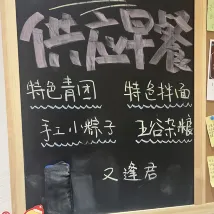 供应早餐
特色青团 特色拌面
手工小粽子 五谷杂粮
又逢君